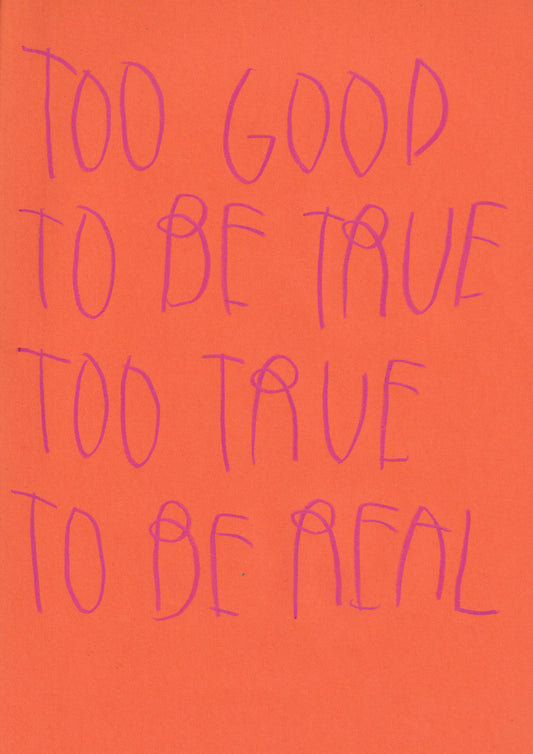 TOO GOOD
TO BE TRUE
TOO TRUE
TO BE REAL